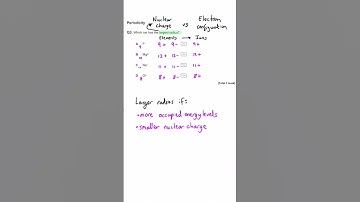 Periodicity Nuclear Charge vs Electron configuration
Q3. Which ion has the largest radius?
Elements → Ions
A F⁻ 9+ 9- 9+
B Mg²⁺ 12+ 12- 12+
C Na⁺ 11+ 11- 11+
D O²⁻ 8+ 8- 8+
Larger radius if:
• more occupied energy levels
• smaller nuclear charge